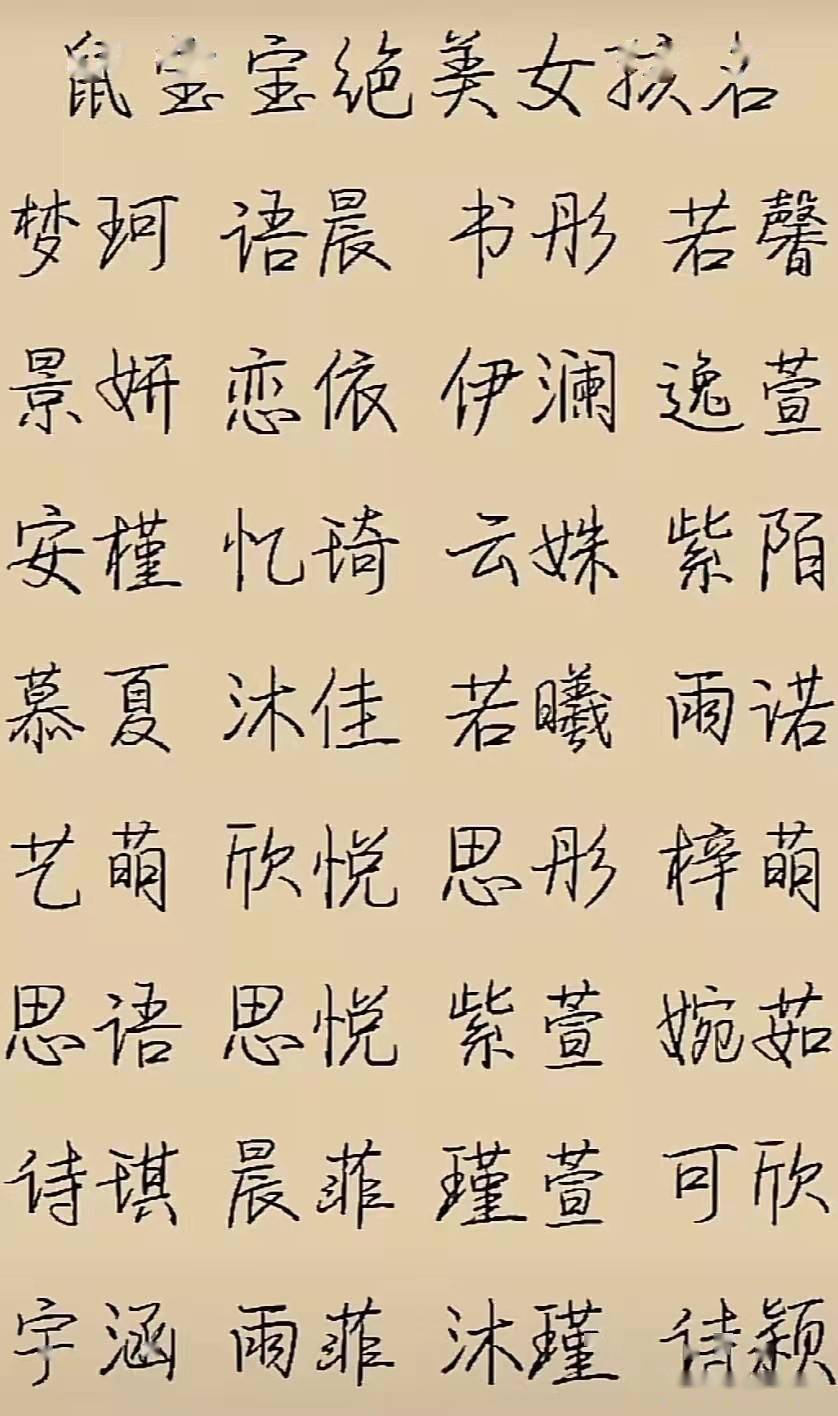 鼠宝宝绝美女孩名
梦珂 语晨 书彤 若馨
景妍 恋依 伊澜 逸萱
安槿 忆琦 云姝 紫陌
慕夏 沐佳 若曦 雨诺
艺萌 欣悦 思彤 梓萌
思语 思悦 紫萱 婉茹
诗琪 晨菲 瑾萱 可欣
宇涵 雨菲 沐瑾 诗颖